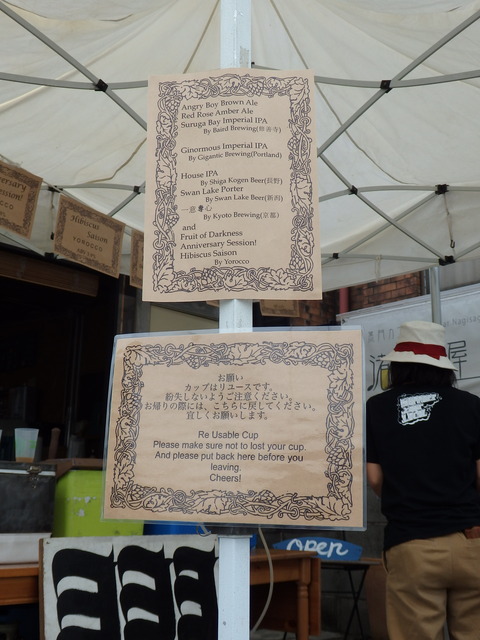 Angry Boy Brown Ale
Red Rose Amber Ale
Suruga Bay Imperial IPA
By Baird Brewing(修善寺)
Ginormous Imperial IPA
By Gigantic Brewing(Portland)
House IPA
By Shiga Kogen Beer(長野)
Swan Lake Porter
By Swan Lake Beer(新潟)
一意専心
By Kyoto Brewing(京都)
and
Fruit of Darkness
Anniversary Session!
Hibiscus Saison
By Yorocco
Hibiscus
Saison
YOROCCO
お願い
カップはリユースです。
紛失しないようご注意ください。
お帰りの際には、こちらに戻してください。
宜しくお願いします。
Re Usable Cup
Please make sure not to lost your cup.
And please put back here before you
leaving.
Cheers!
open
屋